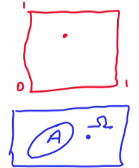 1
0 1
A Ω